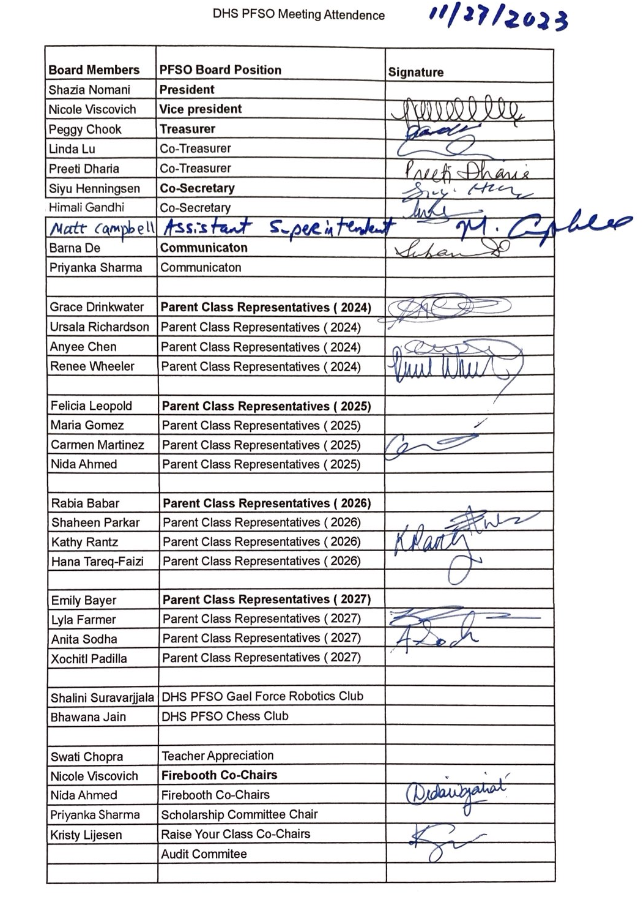 DHS PFSO Meeting Attendence 11/27/2023
Board Members PFSO Board Position Signature
Shazia Nomani President
Nicole Viscovich Vice president
Peggy Chook Treasurer
Linda Lu Co-Treasurer
Preeti Dharia Co-Treasurer Preeti Dharia
Siyu Henningsen Co-Secretary
Himali Gandhi Co-Secretary
Matt Campbell Assistant Superintendent
Barna De Communicaton
Priyanka Sharma Communicaton
Grace Drinkwater Parent Class Representatives ( 2024)
Ursala Richardson Parent Class Representatives ( 2024)
Anyee Chen Parent Class Representatives ( 2024)
Renee Wheeler Parent Class Representatives ( 2024)
Felicia Leopold Parent Class Representatives ( 2025)
Maria Gomez Parent Class Representatives ( 2025)
Carmen Martinez Parent Class Representatives ( 2025)
Nida Ahmed Parent Class Representatives ( 2025)
Rabia Babar Parent Class Representatives ( 2026)
Shaheen Parkar Parent Class Representatives ( 2026)
Kathy Rantz Parent Class Representatives ( 2026) K Rantz
Hana Tareq-Faizi Parent Class Representatives ( 2026)
Emily Bayer Parent Class Representatives ( 2027)
Lyla Farmer Parent Class Representatives ( 2027)
Anita Sodha Parent Class Representatives ( 2027)
Xochitl Padilla Parent Class Representatives ( 2027)
Shalini Suravarjjala DHS PFSO Gael Force Robotics Club
Bhawana Jain DHS PFSO Chess Club
Swati Chopra Teacher Appreciation
Nicole Viscovich Firebooth Co-Chairs
Nida Ahmed Firebooth Co-Chairs
Priyanka Sharma Scholarship Committee Chair
Kristy Lijesen Raise Your Class Co-Chairs
Audit Commitee